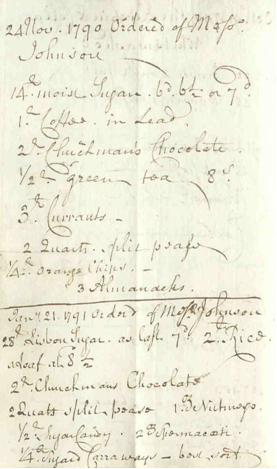 24 Nov. 1790 Ordered of Messrs.
Johnson
14 lb moist Sugar. 6d. 6½ or 7d
1 lb Coffee in Lead.
2 lb Churchman's Chocolate.
½ lb green tea 8s.
3 lb Currants -
2 Quarts. split pease
¼ lb orange Chips. -
3 Almanacks.
Jany 21. 1791 Orderd of Messrs Johnson
28 lb Lisbon Sugar. as last. 7d. 2 lb Rice.
a loaf at 8½
2 lb Churchmans Chocolate
2 Quarts split pease 1 lb Nutmegs.
½ lb Sugar Candy. 2 Spermaceti.
¼ lb Sugard Carraways - best sort